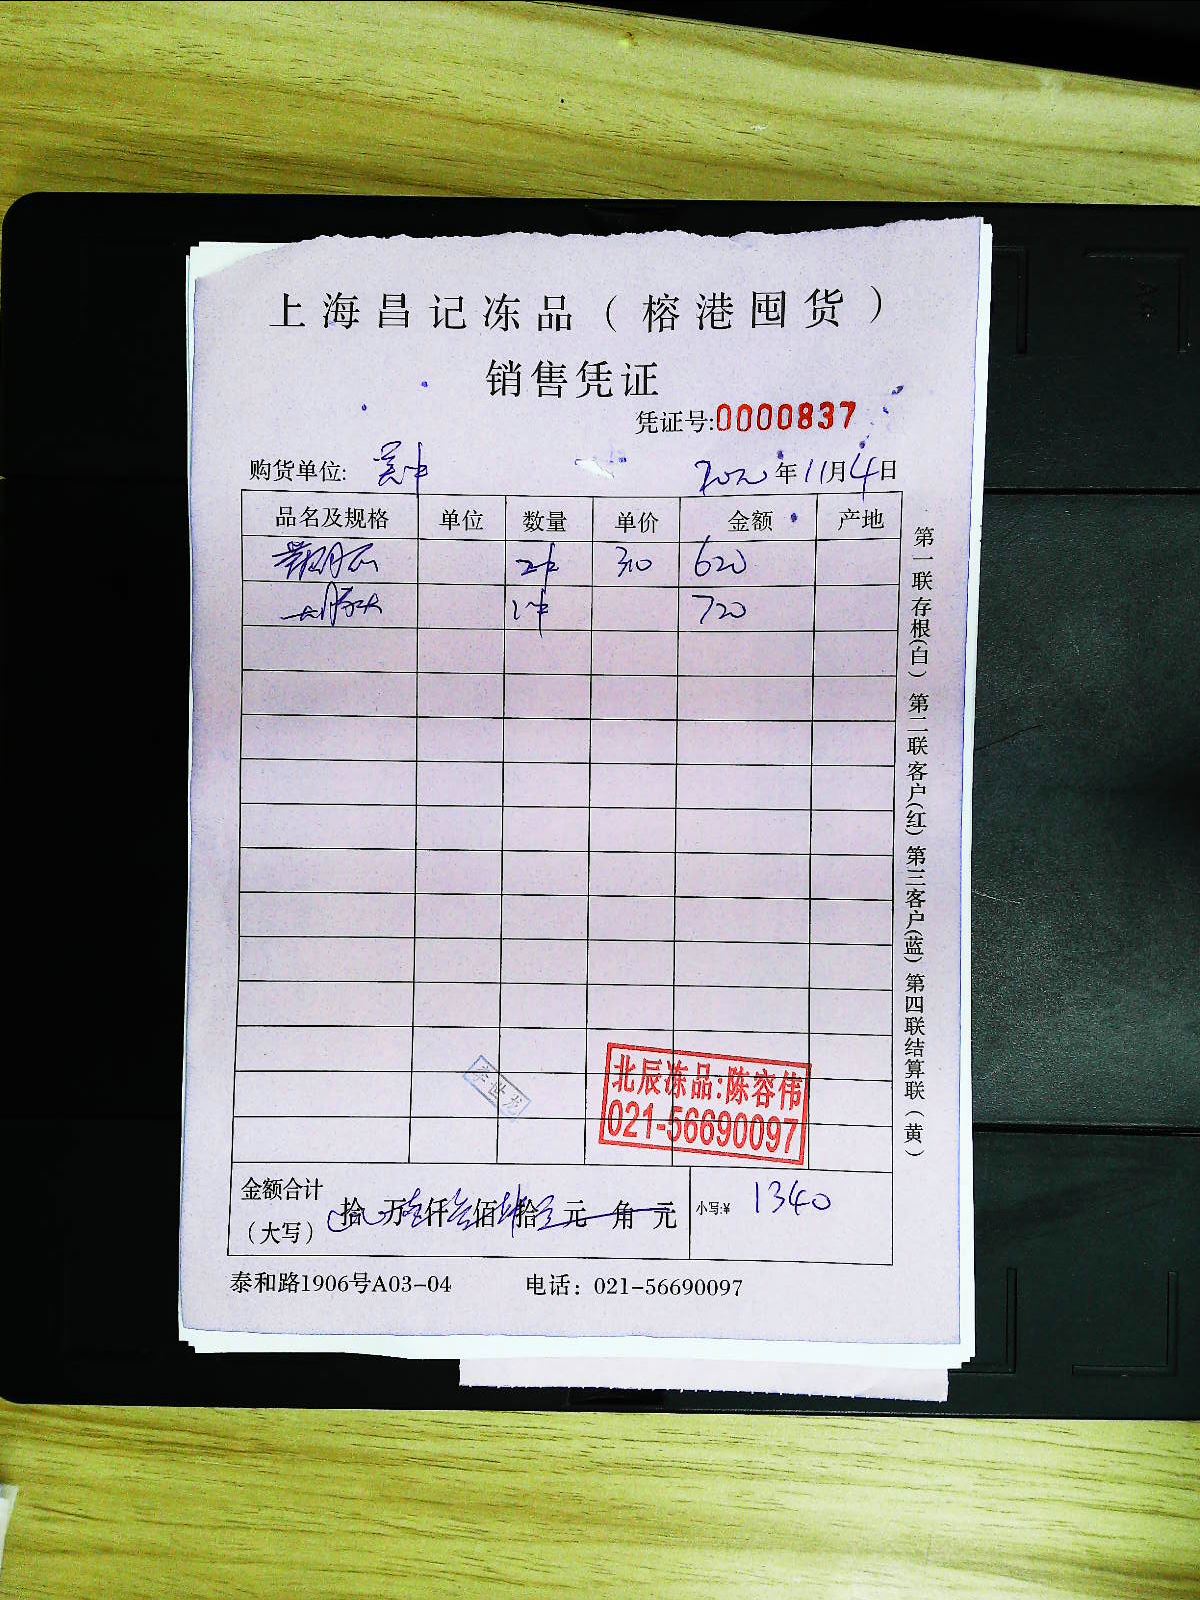 上海昌记冻品（榕港囤货）
销售凭证
凭证号:0000837
购货单位: 2020年11月4日
品名及规格 单位 数量 单价 金额 产地
2件 310 620
1件 720
北辰冻品:陈容伟
021-56690097
李世龙
金额合计
（大写） 拾 万壹仟叁佰肆拾元 角 元 小写:¥ 1340
泰和路1906号A03-04 电话：021-56690097
第一联存根(白) 第二联客户(红) 第三客户(蓝) 第四联结算联(黄)